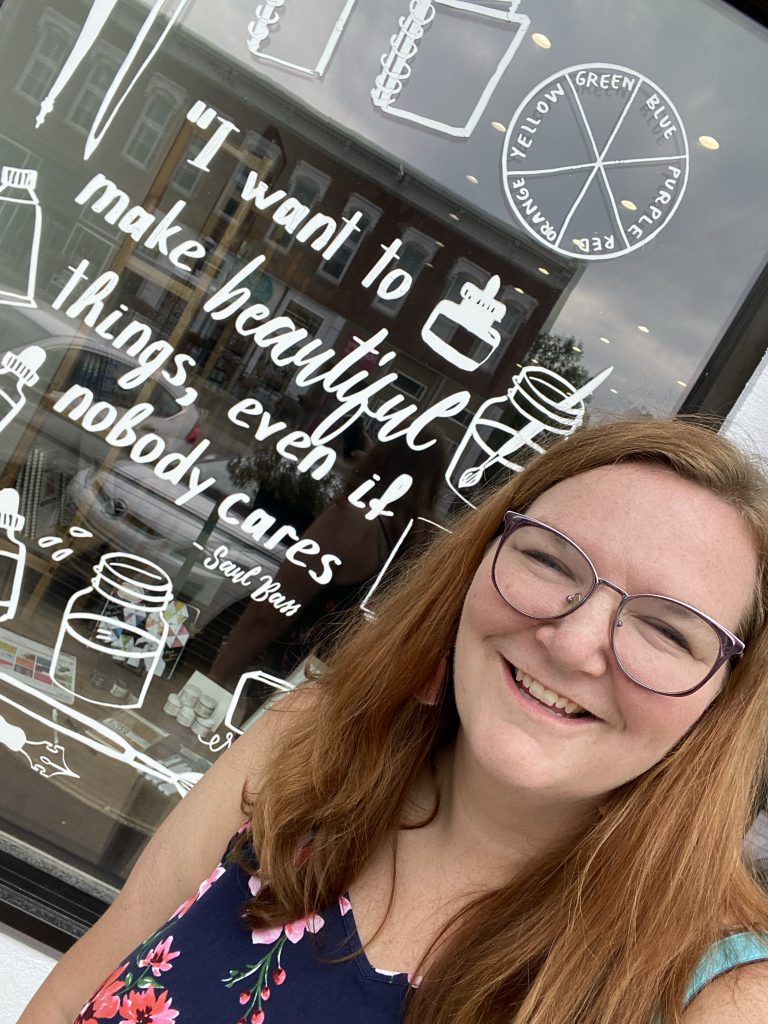 "I want to
make beautiful
things, even if
nobody cares
- Saul Bass
GREEN
BLUE
PURPLE
RED
ORANGE
YELLOW